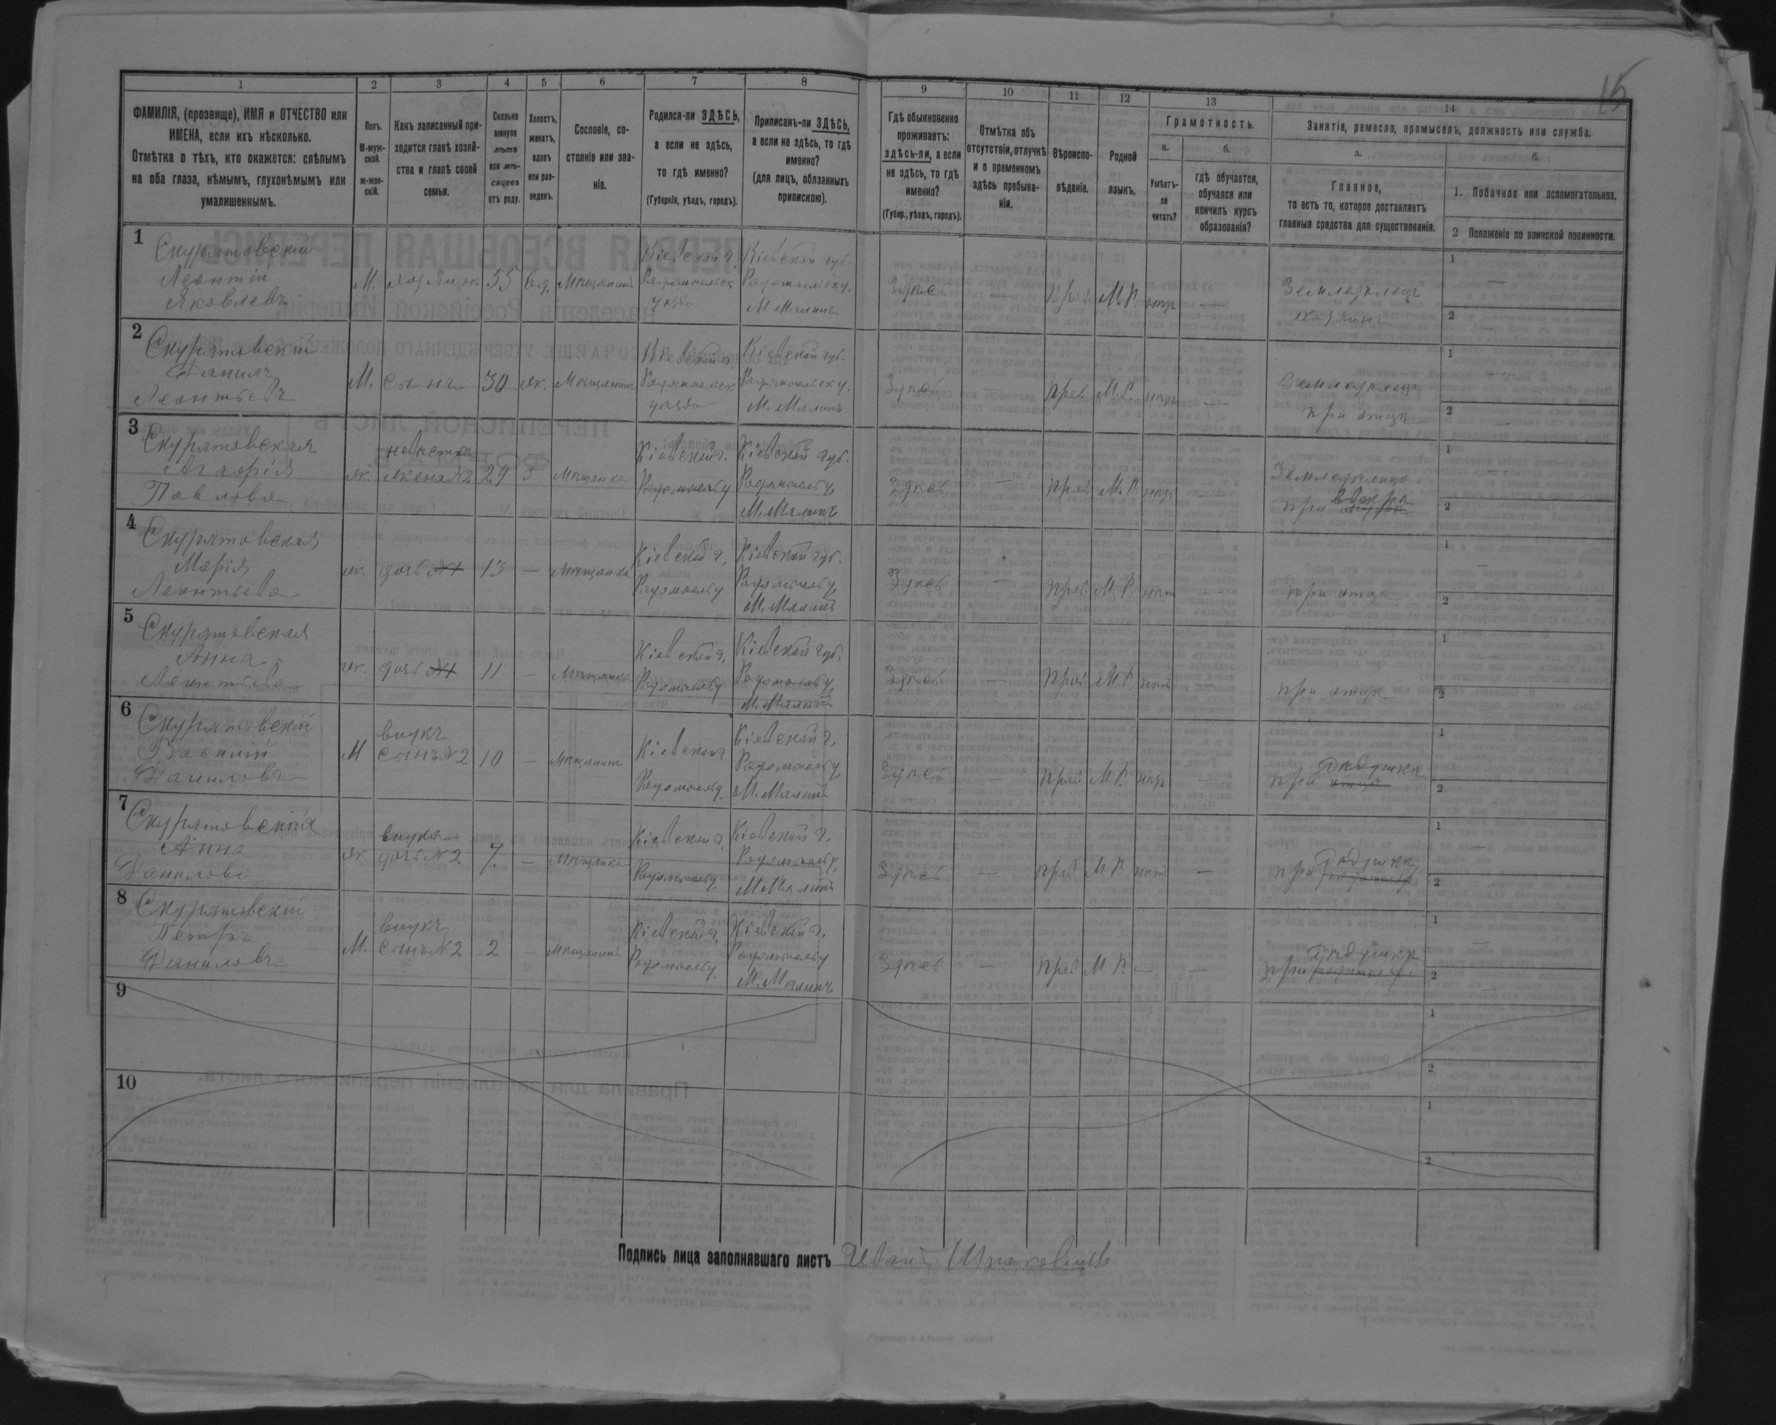 15
1 2 3 4 5 6 7 8 9 10 11 12 13 14
ФАМИЛІЯ, (прозвище), ИМЯ и ОТЧЕСТВО или
ИМЕНА, если ихъ нѣсколько.
Отмѣтка о тѣхъ, кто окажется: слѣпымъ
на оба глаза, нѣмымъ, глухонѣмымъ или
умалишеннымъ.
Полъ.
М-муж-
ской.
ж-жен-
скій.
Какъ записанный при-
ходится главѣ хозяй-
ства и главѣ своей
семьи.
Сколько
минуло
лѣтъ
или мѣ-
сяцевъ
отъ роду.
Холостъ,
женатъ,
вдовъ
или раз-
веденъ.
Сословіе, со-
стояніе или зва-
ніе.
Родился-ли ЗДѢСЬ,
а если не здѣсь,
то гдѣ именно?
(Губернія, уѣздъ, городъ).
Приписанъ-ли ЗДѢСЬ,
а если не здѣсь, то гдѣ
именно?
(для лицъ, обязанныхъ
припискою).
Гдѣ обыкновенно
проживаетъ:
здѣсь-ли, а если
не здѣсь, то гдѣ
именно?
(Губер., уѣздъ, городъ).
Отмѣтка объ
отсутствіи, отлучкѣ
и о временномъ
здѣсь пребыва-
ніи.
Вѣроиспо-
вѣданіе.
Родной
языкъ.
Грамотность.
а.
Умѣетъ-
ли
читать?
б.
гдѣ обучается,
обучался или
кончилъ курсъ
образованія?
Занятіе, ремесло, промыселъ, должность или служба.
а.
Главное,
то есть то, которое доставляетъ
главныя средства для существованія.
б.
1. Побочное или вспомогательное.
2 Положеніе по воинской повинности.
1
Скуратовскій
Леонтій
Яковлевъ
М. хозяинъ 55 вд. Мѣщанинъ
Кіевская г.
Радомысльск
уѣзда
Кіевской губ.
Радомысльск у.
М. Малинъ
Здѣсь — прав М.Р. нѣтъ —
Земледѣлецъ
хозяинъ
1 —
2 —
2
Скуратовскій
Данилъ
Леонтьевъ
М. сынъ 30 ж. Мѣщанинъ
Кіевской г.
Радомысльск
уѣзда
Кіевской губ.
Радомысльск у.
М. Малинъ
Здѣсь — прав М.Р. нѣтъ —
Земледѣлецъ
при отцѣ
1 —
2 —
3
Скуратовская
Агафія
Павлова
ж. невѣстка
жена №2 29 з Мѣщанка
Кіевской г.
Радомыслу
Кіевской губ.
Радомыслу,
М. Малинъ
Здѣсь — прав М.Р. нѣтъ
Земледѣлецъ
при
1 —
2
4
Скуратовская
Марія
Леонтьева
ж. дочь №1 13 — Мѣщанка
Кіевской г.
Радомыслу
Кіевской губ.
Радомыслу,
М. Малинъ
Здѣсь — прав М.Р. нѣт —
при отцѣ
1 —
2
5
Скуратовская
Анна
Леонтьева
ж. дочь №1 11 — Мѣщанка
Кіевской г.
Радомыслу
Кіевской губ.
Радомыслу,
М. Малинъ
Здѣсь — прав М.Р. нѣт —
при отцѣ
1 —
2
6
Скуратовскій
Даниловъ
М внукъ
сынъ №2 10 — Мѣщанинъ
Кіевской
Радомыслу.
Кіевской г.
Радомыслу,
М. Малинъ
Здѣсь — прав М.Р. нѣт —
при дѣдушкѣ
отцѣ
1
2
7
Скуратовская
Анна
Данилова
ж. внука
дочь №2 7. — Мѣщанка
Кіевской г,
Радомыслу,
Кіевской г.
Радомыслу,
М. Малинъ
Здѣсь — прав М.Р. нѣт —
при дѣдушкѣ
1 —
2
8
Скуратовскій
Петръ
Даниловъ
М. внукъ
сынъ №2 2 — Мѣщанинъ
Кіевской г,
Радомыслу.
Кіевской г.
Радомыслу
М. Малинъ
Здѣсь — прав М.Р. — —
при дѣдушкѣ
1 —
2 —
9
1
2
10
1
2
Подпись лица заполнявшаго листъ Иванъ